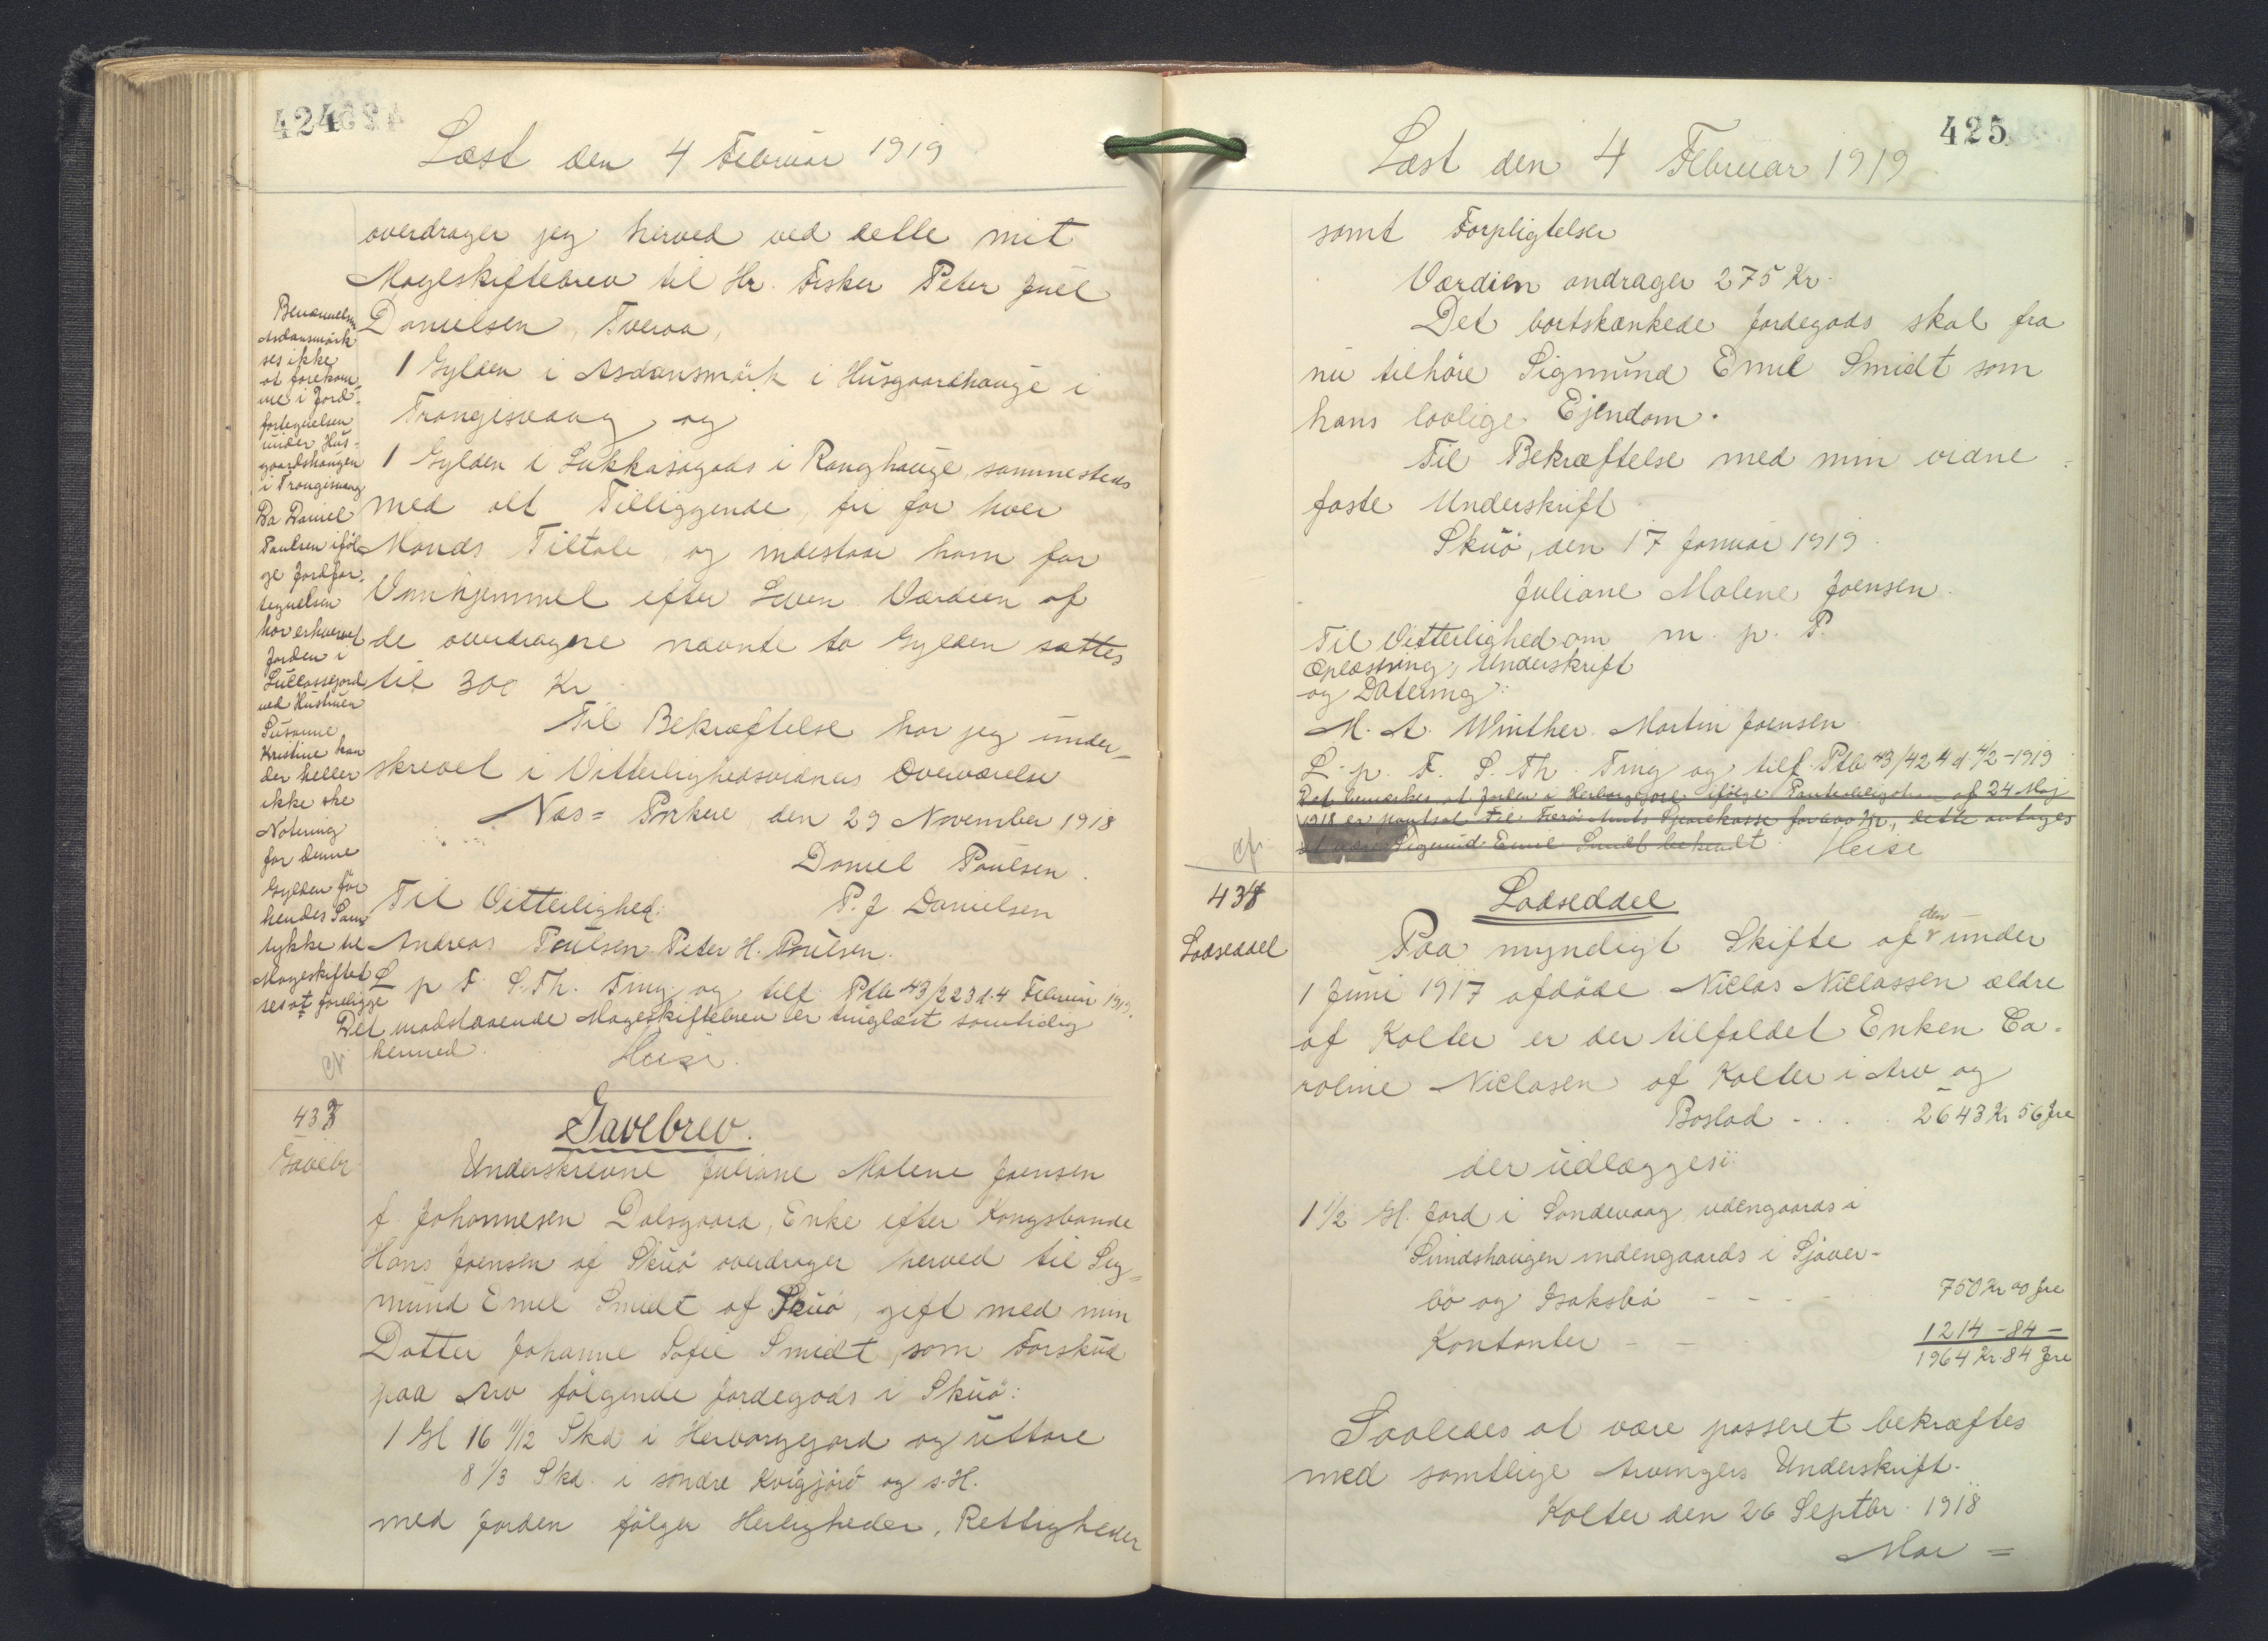 424
Læst den 4 Februar 1919
overdrager jeg herved ved dette mit
Mageskiftebrev til Hr. Fisker Peter Juel
Danielsen, Tveraa,
1 Gylden i Asdansmörk i Husgaardhauge i
Trongisvaag og
1 Gylden i Lukkasagods i Ranghauge, sammesteds
med alt Tilliggende, fri for hver
Mands Tiltale og indestaar ham for
Vanhjemmel efter Loven. Værdien af
de overdragne nævnte to Gylden sættes
til 300 Kr
Til Bekræftelse har jeg under-
skrevet i Vitterlighedsvidners Overværelse
Næs = Porkere den 29 November 1918
Daniel Poulsen.
Til Vitterlighed: P. J. Danielsen
Andreas Poulsen. Peter H. Poulsen.
L p F. S. Th. Ting og tilf. Ptb 43/223 d. 4 Februar 1919.
Det modstaaende Mageskiftebrev er tinglæst samtidig
hermed. Heise.
Benævnelsen
Asdansmörk
ses ikke
at forekom-
me i Jord-
fortegnelsen
under Hus-
gaardshaugen
i Trongisvaag
Da Daniel
Poulsen iföl-
ge Jordfor-
tegnelsen
har erhvervet
Jorden i
Lullassejord
ved Hustruen
Susanne
Kristine kan
der heller
ikke ske
Notering
for denne
Gylden för
hendes Sam-
tykke til
Mageskiftet
ses at foreligge
437
Gavebr
Gavebrev.
Underskrevne Juliane Malene Joensen
f. Johannesen Dalsgaard, Enke efter Kongsbonde
Hans Joensen af Skuö overdrager herved til Sig=
mund Emil Smidt af Skuö, gift med min
Datter Johanne Sofie Smidt, som Forskud
paa Arv fölgende Jordegods i Skuö:
1 Gl 16 11/12 Skd i Herborggjord og uttare
8 1/3 Skd. i söndre Kvigjord og s. H.
med Jorden fölger Herligheder, Rettigheder
425
Læst den 4 Februar 1919
samt Forpligtelser
Værdien andrager 275 Kr.
Det bortskænkede Jordegods skal fra
nu tilhöre Sigmund Emil Smidt som
hans lovlige Ejendom.
Til Bekræftelse med min vidne
faste Underskrift
Skuö, den 17 Januar 1919.
Juliane Malene Joensen.
Til Vitterlighed om m. p. P.
Oplæsning, Underskrift
og Datering:
M. A. Winther. Martin Joensen.
L. p. F. S. Th. Ting og tilf. Ptb 43/424 d 4/2-1919
Det bemærkes at Jorden i Herborggjord ifölge Pantobligation af 24 Maj
1918 er pantsat til Færö Amts Sparekasse for 600 Kr, dette antages
at være Sigmund Emil Smidt bekendt. Heise
438
Lodseddel
Lodseddel
Paa myndigt Skifte af den under
1 Juni 1917 afdöde Niclas Niclassen ældre
af Kolter er der tilfaldet Enken Ca-
roline Niclasen af Kolter i Arv og
Boslod - . . . 2643 Kr 56 Öre
der udlægges:
1 1/2 Gl. Jord i Sandevaag udengaards i
Sundshaugen indengaards i Sjöver-
bö og Isaksbö - - - - 750 Kr 00 Öre
Kontanter - - 1214 - 84 -
1964 Kr 84 Öre
Saaledes at være passeret bekræftes
med samtlige Arvingers Underskrift.
Kolter den 26 Septbr. 1918
Mar =